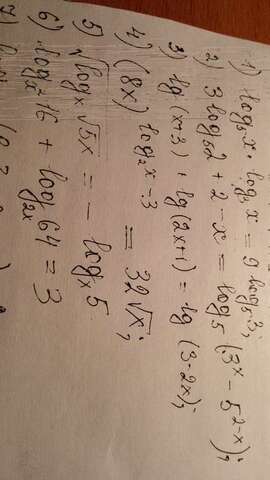 1) log₅x · log₃x = 9 log₅3;
2) 3 log₅2 + 2 - x = log₅(3ˣ - 5²⁻ˣ);
3) lg(x+3) + lg(2x+1) = lg(3-2x);
4) (8x)^(log₂x - 3) = 32√x;
5) √(logₓ√5x) = - logₓ5
6) log_(x²)16 + log_(2x)64 = 3
7)